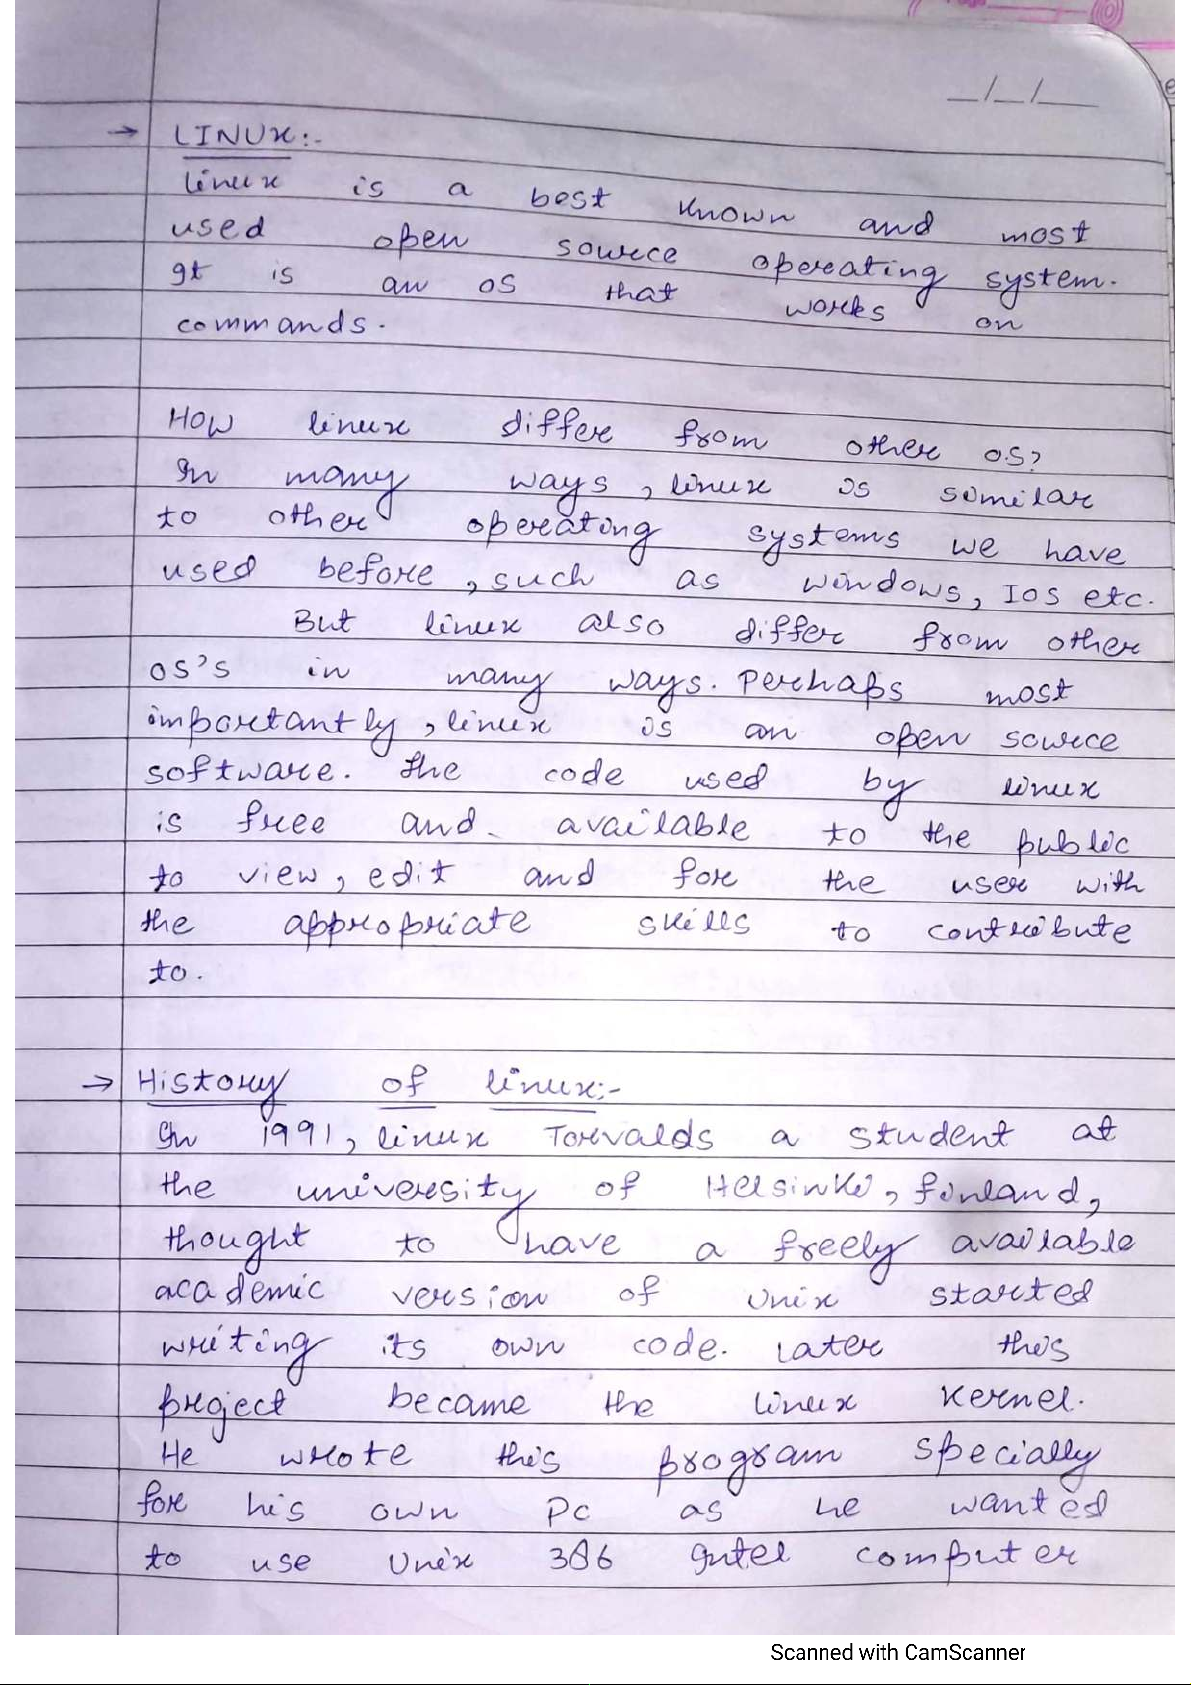 _/_/__
→ LINUX:-
Linux is a best known and most
used open source operating system.
It is an OS that works on
commands.
How linux differ from other O.S?
In many ways, linux is similar
to other operating systems we have
used before, such as windows, IOS etc.
But linux also differ from other
OS's in many ways. Perhaps most
importantly, linux is an open source
software. The code used by linux
is free and available to the public
to view, edit and for the user with
the appropriate skills to contribute
to.
→ History of linux:-
In 1991, linux Torvalds a student at
the university of Helsinki, finland,
thought to have a freely available
academic version of Unix started
writing its own code. Later this
project became the linux kernel.
He wrote this program specially
for his own PC as he wanted
to use Unix 386 Intel computer
Scanned with CamScanner